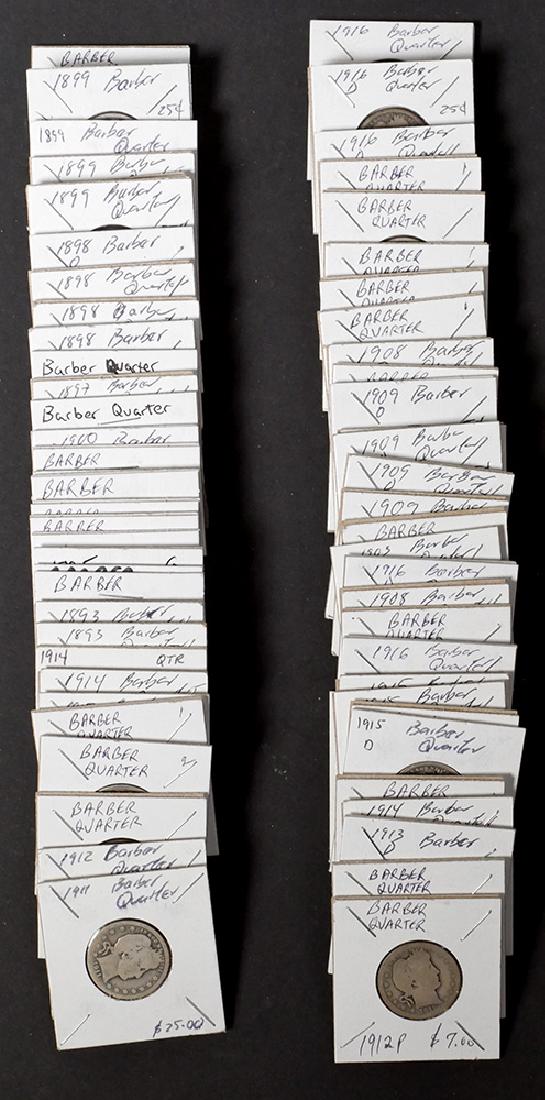 BARBER
1899 Barber
25¢
1899 Barber
Quarter
1899 Barber
1899 Barber
Quarter
1898 Barber
O
1898 Barber
Quarter
1898 Barber
1898 Barber
Barber Quarter
1897 Barber
Barber Quarter
1900 Barber
BARBER
BARBER
BARBER
BARBER
BARBER
1893 Barber
1893 Barber
1914 QTR
1914 Barber
BARBER
QUARTER
BARBER
QUARTER
BARBER
QUARTER
1912 Barber
Quarter
1911 Barber
Quarter
$25.00
1916 Barber
Quarter
1916 Barber
D Quarter
25¢
1916 Barber
D Quarter
BARBER
QUARTER
BARBER
QUARTER
BARBER
QUARTER
BARBER
QUARTER
BARBER
QUARTER
1908 Barber
BARBER
1909 Barber
O
1909 Barber
Quarter
1909 Barber
D Quarter
1909 Barber
BARBER
Quarter
1916 Barber
1908 Barber
BARBER
QUARTER
1916 Barber
Quarter
Barber
1915 Barber
D Quarter
BARBER
1914 Barber
Quarter
1913 Barber
D
BARBER
QUARTER
BARBER
QUARTER
1912 P $7.00